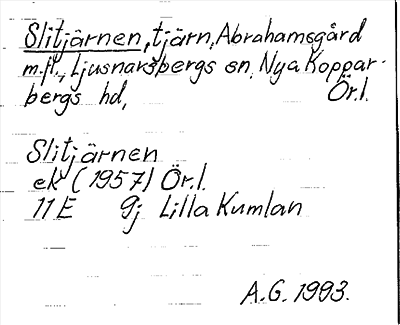 Slitjärnen, tjärn, Abrahamsgård
m.fl., Ljusnarsbergs sn, Nya Koppar-
bergs hd, Ör.l.
Slitjärnen
ek (1957) Ör.l.
11 E 9j Lilla Kumlan
A.G. 1993.